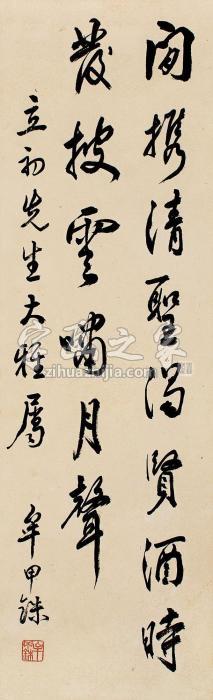 閒攜清聖濁賢酒時
發披雲嘯月聲
立初先生大雅屬
牟甲銖
字画之家
zihuazhijia.com